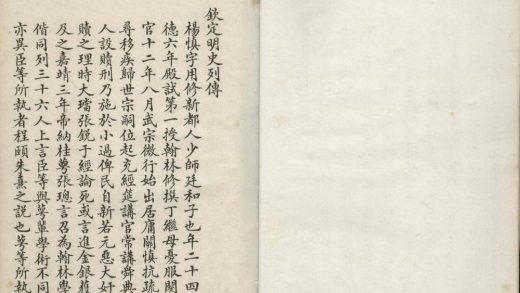 欽定明史列傳
楊慎字用修新都人少師廷和子也年二十四
德六年殿試第一授翰林修撰丁繼母憂服闋
官十二年八月武宗微行始出居庸關慎抗疏
尋移疾歸世宗嗣位起充經筵講官常講舜典
人設贖刑乃施於小過俾民自新若元惡大奸
贖之理時大璫張銳于經論死或言進金銀獲
及之嘉靖三年帝納桂萼張璁言召為翰林學
偕同列三十六人上言臣等與萼輩學術不同
亦異臣等所執者程頤朱熹之說也萼等所執